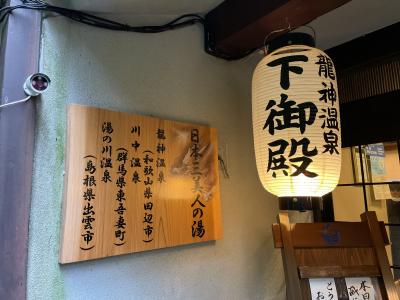 日本三美人の湯
龍神温泉
(和歌山県田辺市)
川中温泉
(群馬県東吾妻町)
湯の川温泉
(島根県出雲市)
龍神温泉
下御殿
本日